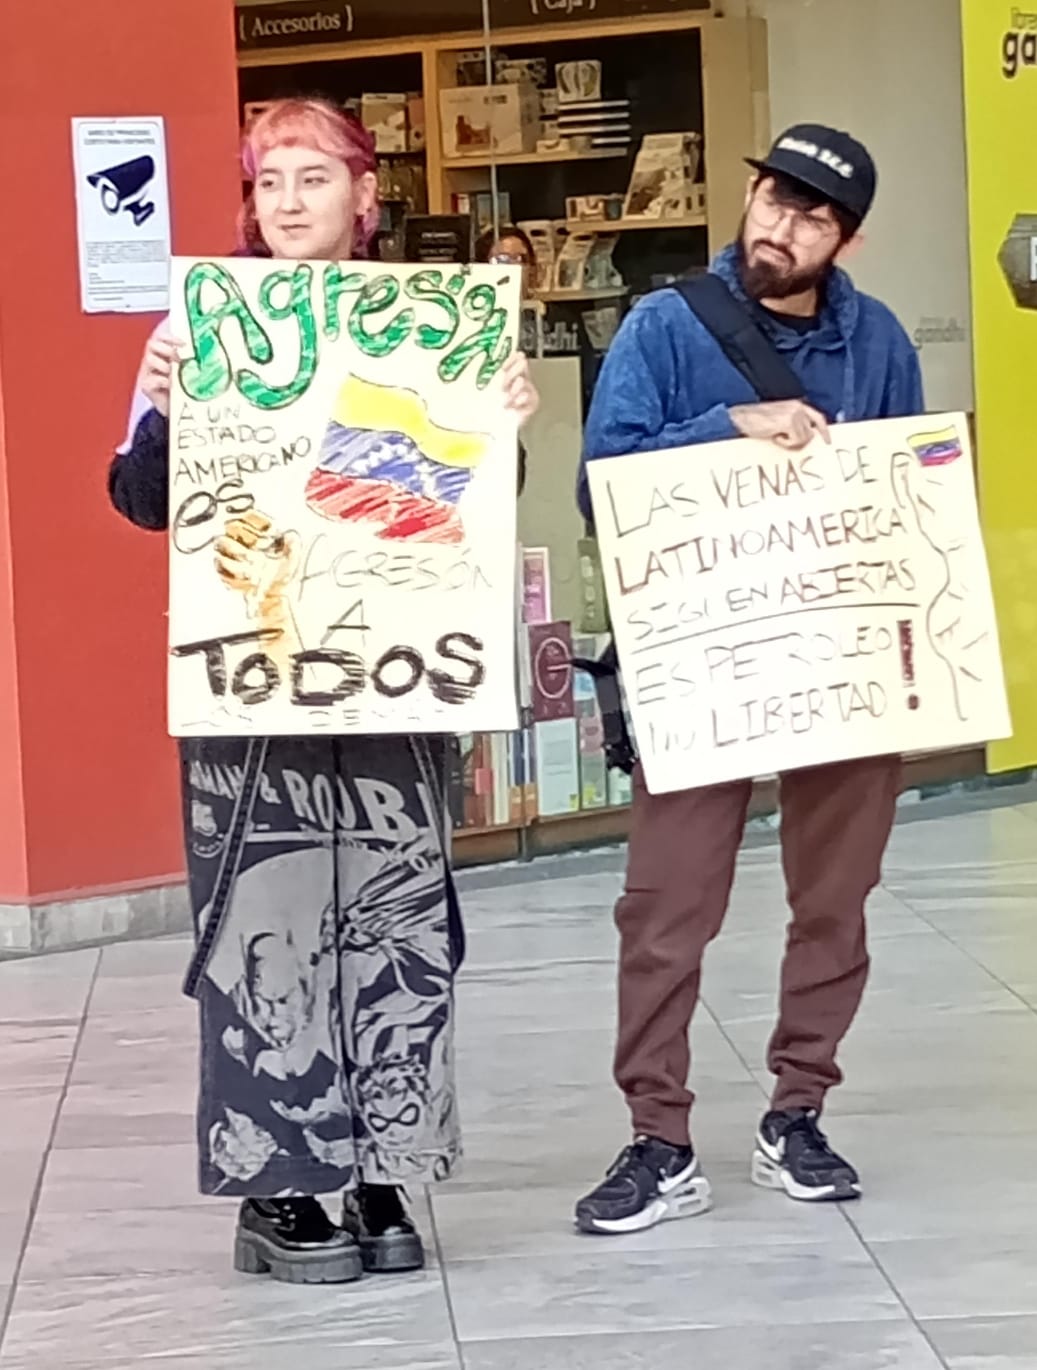 { Accesorios }
{ Caja }
gandhi
Agresión
A UN
ESTADO
AMERICANO
es
AGRESIÓN
A
TODOS
LAS VENAS DE
LATINOAMERICA
SIGUEN ABIERTAS
ES PETROLEO
NO LIBERTAD!
& ROB